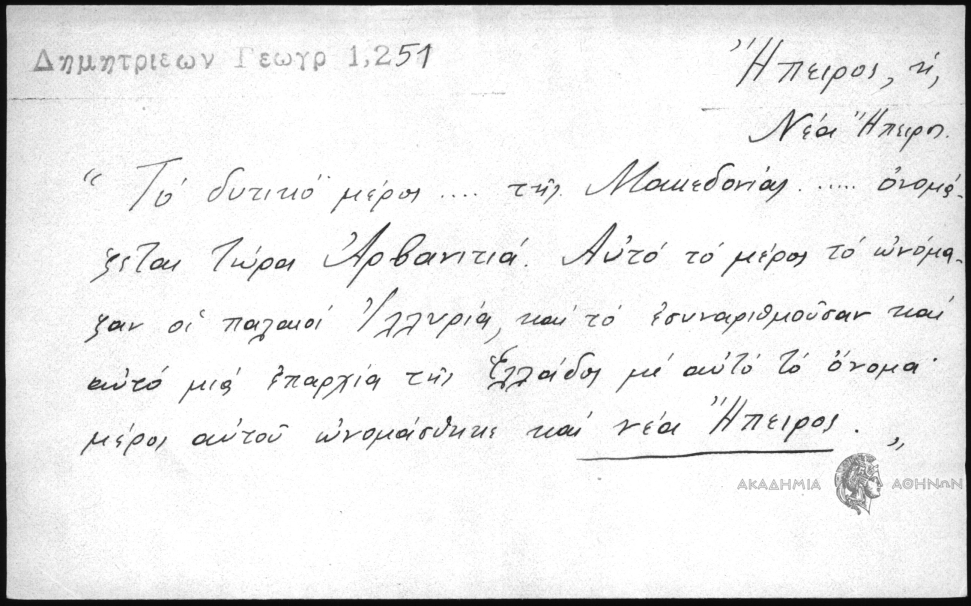 Δημητριεων Γεωγρ 1,251
Ἤπειρος, ἡ,
Νέα Ἤπειρος.
“ Τό δυτικό μέρος .... τῆς Μακεδονίας ..... ὀνομά-
ζεται τώρα Ἀρβανιτιά. Αὐτό τό μέρος τό ὠνόμα-
ζαν οἱ παλαιοί Ἰλλυρία, καί τό ἐσυναριθμοῦσαν καί
αὐτό μιά ἐπαρχία τῆς Ἑλλάδος μέ αὐτό τό ὄνομα·
μέρος αὐτοῦ ὠνομάσθηκε καί νέα Ἤπειρος. „
ΑΚΑΔΗΜΙΑ ΑΘΗΝΩΝ